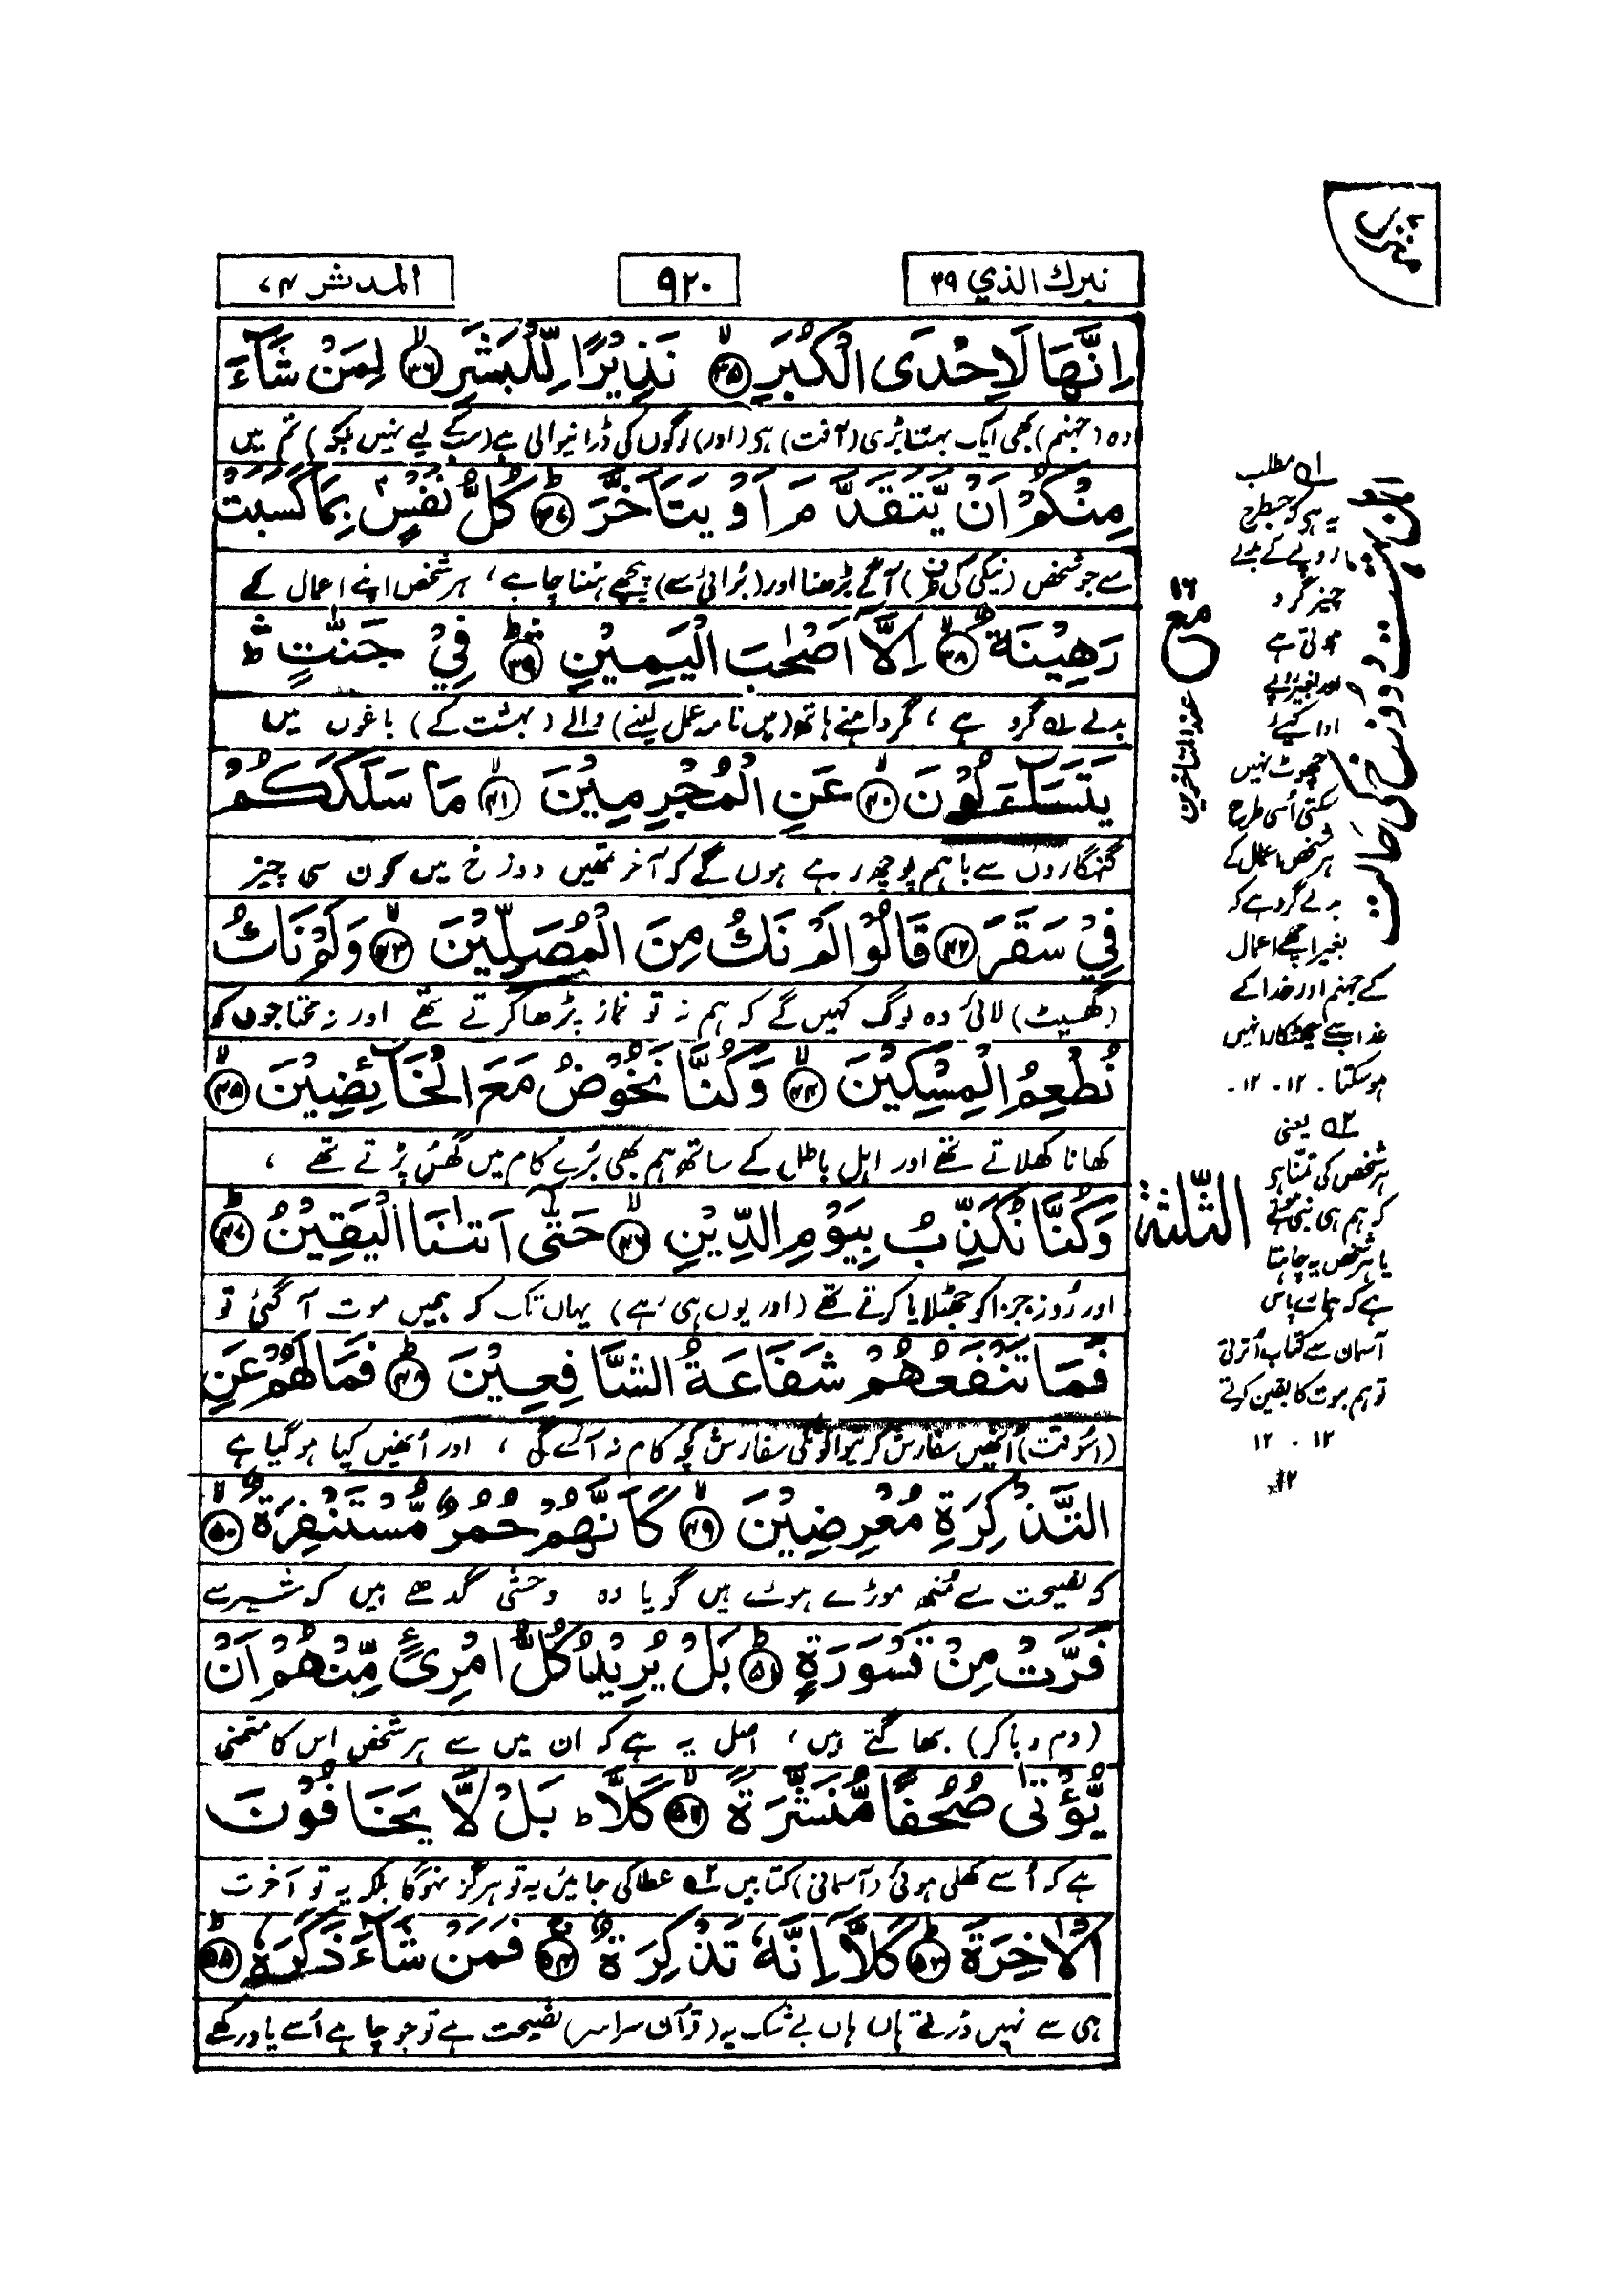 منزل
تبرك الذي ٢٩
٩٢٠
المدثر ٧٤
اِنَّهَا لَاِحْدَى الْكُبَرِ ﴿٣٥﴾ نَذِيْرًا لِّلْبَشَرِ ﴿٣٦﴾ لِمَنْ شَآءَ
وہ (جہنم) بھی ایک بہت بڑی (آفت) ہے (اور) لوگوں کی ڈرانیوالی ہے (سب کے لیے نہیں بلکہ) تم میں
مِنْكُمْ اَنْ يَّتَقَدَّمَ اَوْ يَتَاَخَّرَ ﴿٣٧﴾ كُلُّ نَفْسٍۢ بِمَا كَسَبَتْ
سے جو شخص (نیکی کی طرف) آگے بڑھنا اور (برائی سے) پیچھے ہٹنا چاہے، ہر شخص اپنے اعمال کے
رَهِيْنَةٌ ﴿٣٨﴾ اِلَّاۤ اَصْحٰبَ الْيَمِيْنِ ﴿٣٩﴾ فِيْ جَنّٰتٍ ط
بدلے ۱ گرو ہے، مگر داہنے ہاتھ (میں نامہ عمل لینے) والے (بہشت کے) باغوں میں
يَتَسَآءَلُوْنَ ﴿٤٠﴾ عَنِ الْمُجْرِمِيْنَ ﴿٤١﴾ مَا سَلَكَكُمْ
گنہگاروں سے باہم پوچھ رہے ہوں گے کہ آخر تمھیں دوزخ میں کون سی چیز
فِيْ سَقَرَ ﴿٤٢﴾ قَالُوْا لَمْ نَكُ مِنَ الْمُصَلِّيْنَ ﴿٤٣﴾ وَلَمْ نَكُ
(گھسیٹ) لائی وہ لوگ کہیں گے کہ ہم نہ تو نماز پڑھا کرتے تھے اور نہ محتاجوں کو
نُطْعِمُ الْمِسْكِيْنَ ﴿٤٤﴾ وَكُنَّا نَخُوْضُ مَعَ الْخَآئِضِيْنَ ﴿٤٥﴾
کھانا کھلاتے تھے اور اہل باطل کے ساتھ ہم بھی بُرے کام میں گھس پڑتے تھے،
وَكُنَّا نُكَذِّبُ بِيَوْمِ الدِّيْنِ ﴿٤٦﴾ حَتّٰىۤ اَتٰىنَا الْيَقِيْنُ ﴿٤٧﴾
اور روز جزا کو جھٹلایا کرتے تھے (اور یوں ہی رہے) یہاں تک کہ ہمیں موت آ گئی تو
فَمَا تَنْفَعُهُمْ شَفَاعَةُ الشَّافِعِيْنَ ﴿٤٨﴾ فَمَا لَهُمْ عَنِ
(اُسوقت) اُنھیں سفارش کرنیوالونکی سفارش کچھ کام نہ آئے گی، اور اُنھیں کیا ہو گیا ہے
التَّذْكِرَةِ مُعْرِضِيْنَ ﴿٤٩﴾ كَاَنَّهُمْ حُمُرٌ مُّسْتَنْفِرَةٌ ﴿٥٠﴾
کہ نصیحت سے منھ موڑے ہوئے ہیں گویا وہ وحشی گدھے ہیں کہ شیر سے
فَرَّتْ مِنْ قَسْوَرَةٍ ﴿٥١﴾ بَلْ يُرِيْدُ كُلُّ امْرِئٍ مِّنْهُمْ اَنْ
(دم دبا کر) بھاگتے ہیں، اصل یہ ہے کہ ان میں سے ہر شخص اس کا متمنی
يُّؤْتٰى صُحُفًا مُّنَشَّرَةً ﴿٥٢﴾ كَلَّا ط بَلْ لَّا يَخَافُوْنَ
ہے کہ اُسے کھلی ہوئی (آسمانی) کتابیں ۲ عطا کی جائیں یہ تو ہرگز نہوگا بلکہ یہ تو آخرت
الْاٰخِرَةَ ﴿٥٣﴾ كَلَّاۤ اِنَّهٗ تَذْكِرَةٌ ﴿٥٤﴾ فَمَنْ شَآءَ ذَكَرَهٗ ﴿٥٥﴾
ہی سے نہیں ڈرتے ہاں ہاں بے شک یہ (قرآن سراسر) نصیحت ہے تو جو چاہے اُسے یاد رکھے
١٦
مع
عند المتاخرين
الثلثة
اہل بہشت و دوزخ کی حالت
۱ مطلب
یہ ہے کہ جس طرح
روپے کے بدلے
چیز گرو
ہوتی ہے
اور بغیر روپے
ادا کیے
چھوٹ نہیں
سکتی اُسی طرح
ہر شخص اعمال کے
بدلے گرو ہے کہ
بغیر اچھے اعمال
کے جہنم اور خدا کے
عذاب سے چھٹکارا نہیں
ہو سکتا۔ ۱۲۔ ۱۲۔
۲ یعنی
ہر شخص کی تمنا ہو
کہ ہم ہی نبی ہوتے
یا ہر شخص یہ چاہتا
ہے کہ ہمارے پاس
آسمان سے کتاب اُترتی
تو ہم موت کا یقین کرتے
۱۲ ۔ ۱۲
۱۲